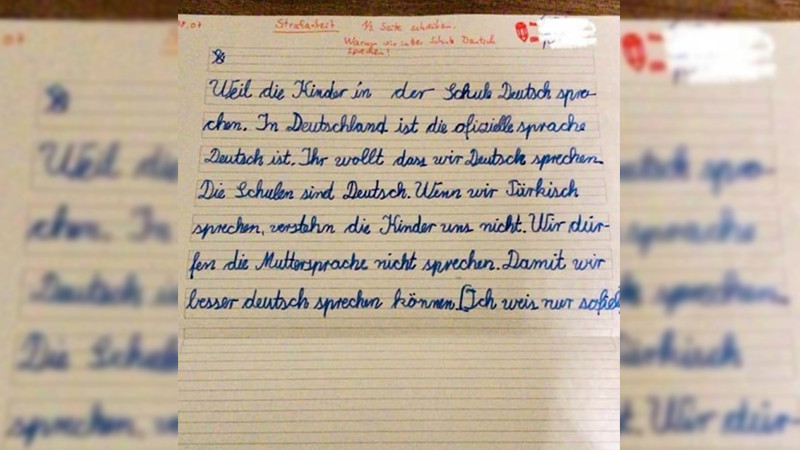 .07 Strafarbeit 1/2 Seite schreiben.
Warum wir in der Schule Deutsch
sprechen!
Weil die Kinder in der Schule Deutsch spre-
chen. In Deutschland ist die ofizielle sprache
Deutsch ist. Ihr wollt dass wir Deutsch sprechen.
Die Schulen sind Deutsch. Wenn wir Türkisch
sprechen, verstehn die Kinder uns nicht. Wir dür-
fen die Muttersprache nicht sprechen. Damit wir
besser deutsch sprechen können. [Ich weis nur sofiel